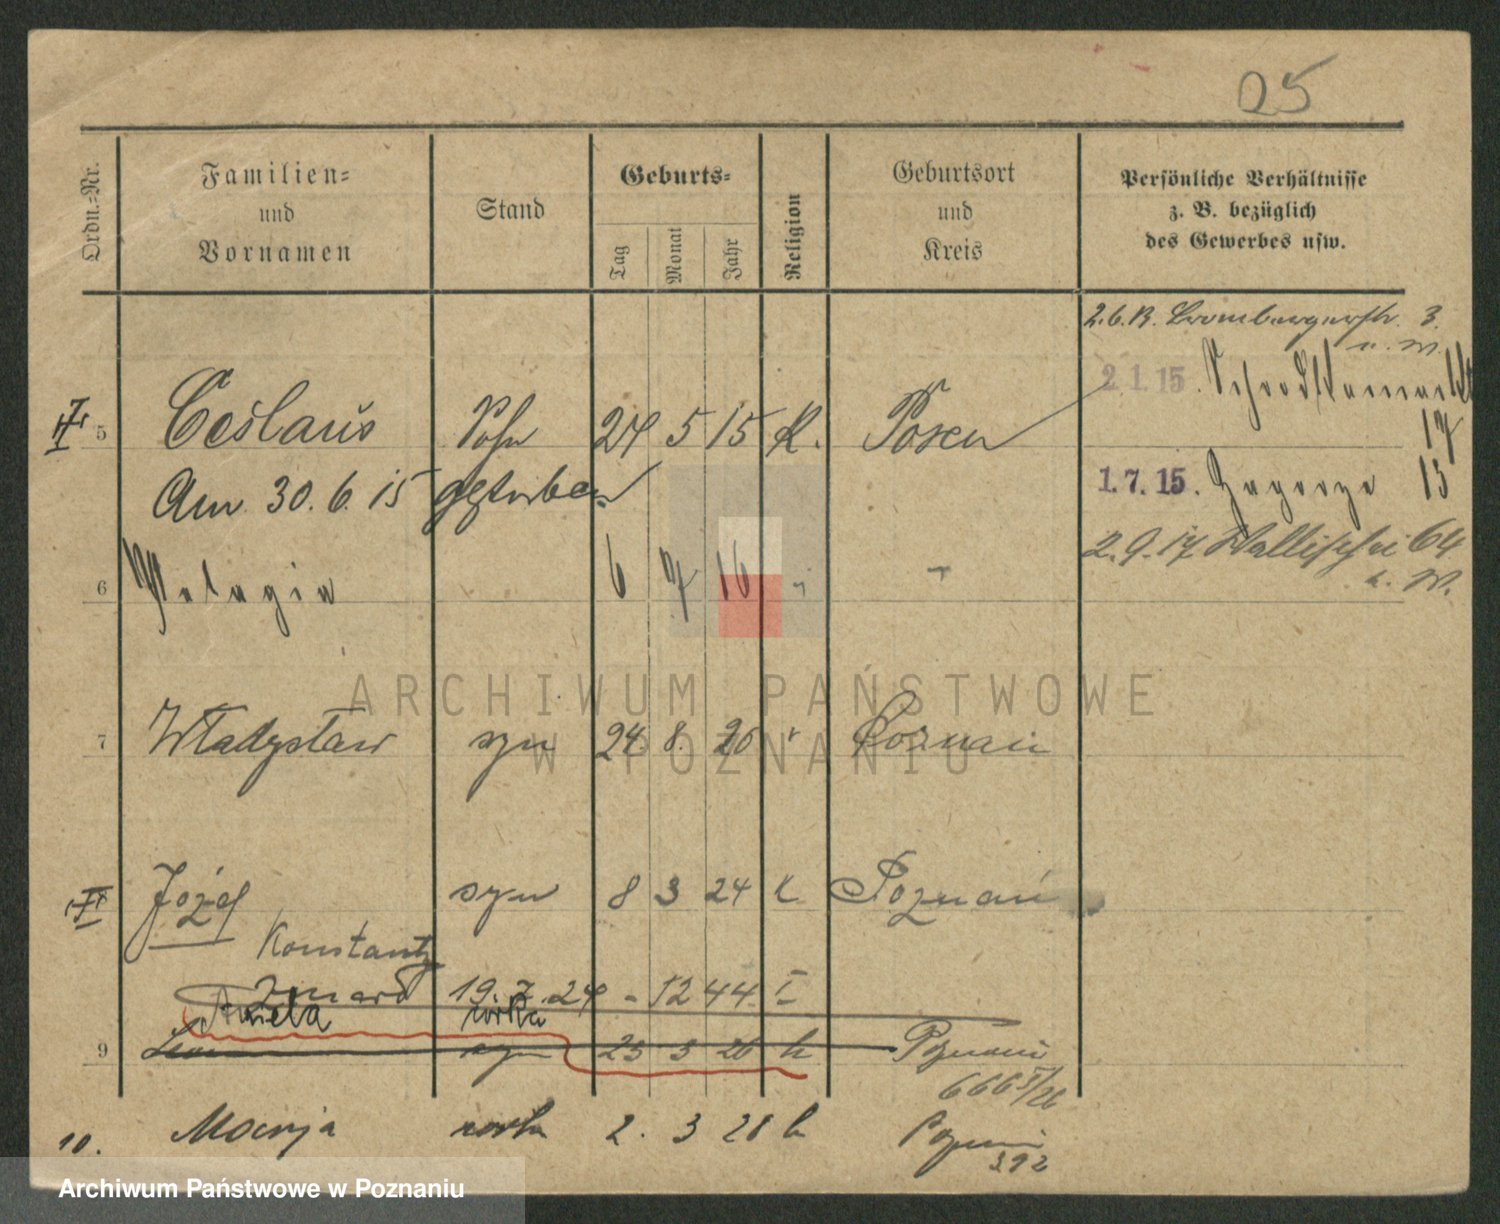 25
Ordn.-Nr.
Familien-
und
Vornamen
Stand
Geburts-
Tag
Monat
Jahr
Religion
Geburtsort
und
Kreis
Persönliche Verhältnisse
z. B. bezüglich
des Gewerbes usw.
Brombergerstr. 3.
u. W.
2.1.15. Schrodkamarkt
17
5 Ceslaus Sohn 24 5 15 K. Posen
Am 30.6.15 gestorben
1.7.15. Zagorze 13
2.9.17 Wallischei 64
u. W.
6 Pelagia 6 7 16 "
7 Władysław syn 24. 8. 20 Poznań
Józef syn 8 3 24 K Poznań
Konstanty
19.7.24 - 12 44 I
Aniela córka
9 syn 23 3 26 k Poznań
666 I/26
10. Marja córka 2. 3 28 k Poznań
392
ARCHIWUM PAŃSTWOWE
W POZNANIU
Archiwum Państwowe w Poznaniu